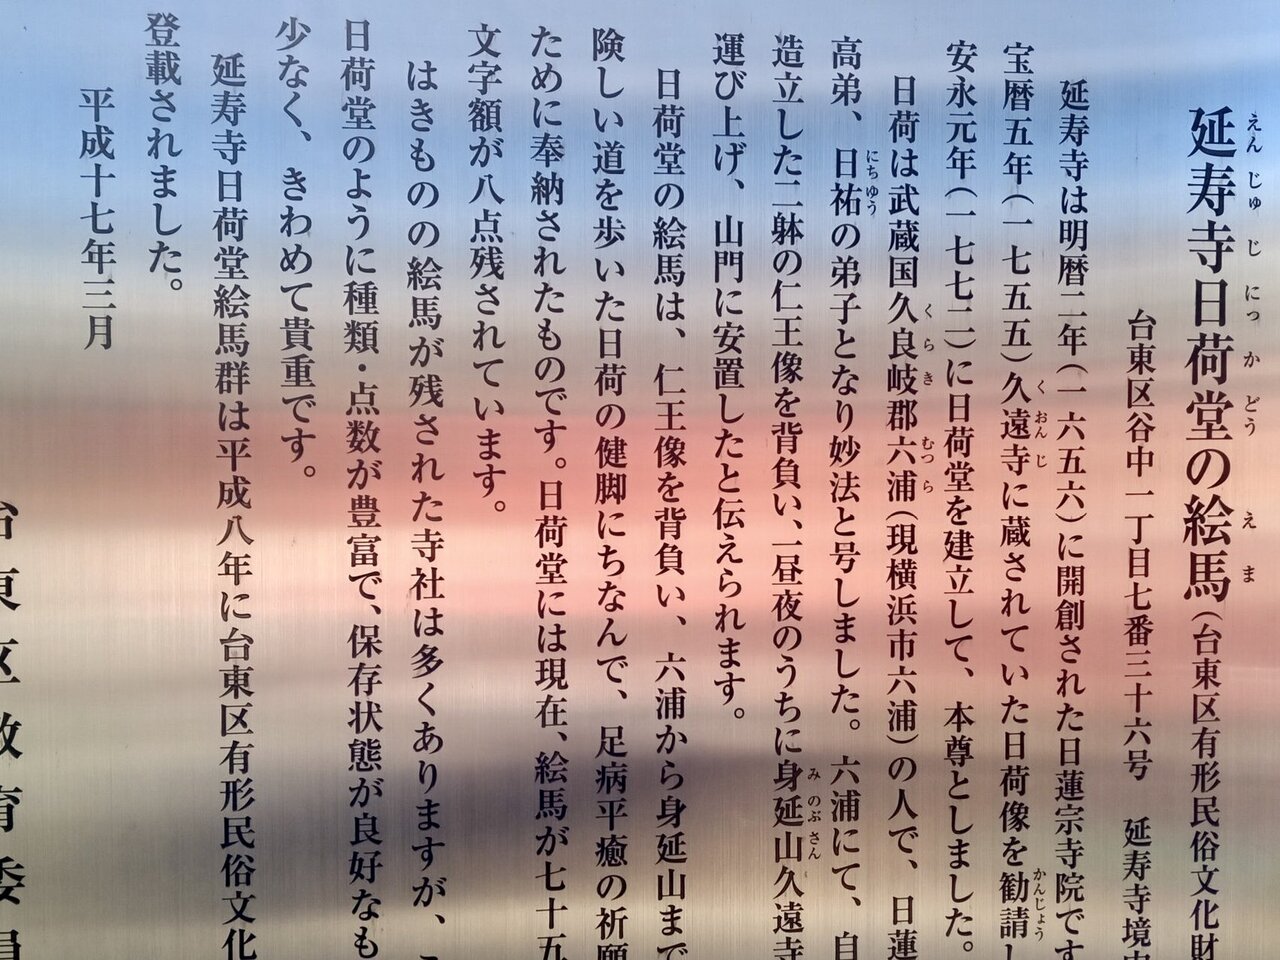 延寿寺日荷堂の絵馬(台東区有形民俗文化財
えんじゅじにっかどうえま
台東区谷中一丁目七番三十六号　延寿寺境内
延寿寺は明暦二年(一六五六)に開創された日蓮宗寺院です
宝暦五年(一七五五)久遠寺に蔵されていた日荷像を勧請し
くおんじ
かんじょう
安永元年(一七七二)に日荷堂を建立して、本尊としました。
日荷は武蔵国久良岐郡六浦(現横浜市六浦)の人で、日蓮
くらき
むつら
高弟、日祐の弟子となり妙法と号しました。六浦にて、自
にちゆう
造立した二躰の仁王像を背負い、一昼夜のうちに身延山久遠寺
みのぶさん
運び上げ、山門に安置したと伝えられます。
日荷堂の絵馬は、仁王像を背負い、六浦から身延山まで
険しい道を歩いた日荷の健脚にちなんで、足病平癒の祈願
ために奉納されたものです。日荷堂には現在、絵馬が七十五
文字額が八点残されています。
はきものの絵馬が残された寺社は多くありますが、こ
日荷堂のように種類・点数が豊富で、保存状態が良好なも
少なく、きわめて貴重です。
延寿寺日荷堂絵馬群は平成八年に台東区有形民俗文化
登載されました。
平成十七年三月
台東区教育委員